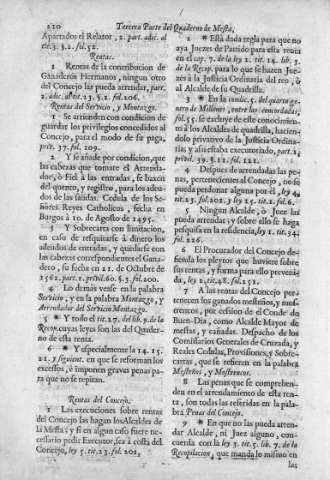 220 Tercera Parte del Quaderno de Mesta,
Apartados el Relator, 2. part. adic. al
tit. 3. §. 2. fol. 52.
Rentas.
1 Rentas de la contribucion de
Ganaderos Hermanos, ningun otro
del Concejo las pueda arrendar, part.
2. adic. al tit. 23. §. 2. fol. 206.
Rentas del Servicio, y Montazgo.
1 Se arrienden con condicion de
guardar los privilegios concedidos al
Concejo, para el modo de su paga,
priv. 37. fol. 109.
2 Y se añade por condicion, que
las cabezas que tomare el Arrenda-
dor, ò Fiel à las entradas, se baxen
del quento, y registro, para los adeu-
dos de las salidas. Cedula de los Se-
ñores Reyes Catholicos, fecha en
Burgos à 10. de Agosto de 1495.
3 Y Sobrecarta con limitacion,
en caso de resquitarse el dinero los
adeudos de entradas, y quedarse con
las cabezas correspondientes el Gana-
dero, su fecha en 21. de Octubre de
1561. part. 1. privil. 60. §. 2. fol. 200.
4 Lo demás vease en la palabra
Servicio, y en la palabra Montazgo, y
Arrendador del Servicio Montazgo.
5 * Y todo el tit. 27. del lib. 9. de la
Recop. cuyas leyes son las del Quader-
no de esta renta.
6 * Y especialmente la 14. 15.
21. y siguient. en que se reforman los
excessos, è imponen graves penas pa-
ra que no se repitan.
Rentas del Concejo.
1 Las execuciones sobre rentas
del Concejo las hagan los Alcaldes de
la Mesta; y si en algun caso fuere ne-
cessario pedir Executor, sea à costa del
Concejo, ley 5. tit. 23. fol. 201.
2 * Està dada regla para que no
aya Juezes de Partido para esta renta
en el cap. 7. de la ley 2. tit. 14. lib. 3.
de la Recop. para lo que se hazen Juezes
à la Justicia Ordinaria del reo, ò
al Alcalde de su Quadrilla.
3 * En la condic. 5. del quarto gene-
ro de Millones, entre las concordadas,
fol. 55. se excluye de este conocimien-
to à los Alcaldes de quadrilla, hacien-
dolo privativo de la Justicia Ordina-
ria; y assi estaba executoriado, part. 1.
privil. 39. §. 11. fol. 121.
4 Despues de arrendadas las pe-
nas, pertenecientes al Concejo, no se
pueda perdonar alguna por él, ley 4.
tit. 23. fol. 201. y ley 15. tit. 1. fol. 6.
5 Ningun Alcalde, ò Juez las
pueda arrendar; y sobre ello se haga
pesquisa en la residencia, ley 1. tit. 34.
fol. 226.
6 El Procurador del Concejo de-
fienda los pleytos que huviere sobre
sus rentas, y forma para ello preveni-
da, ley 2. tit. 48. fol. 251.
7 A las rentas del Concejo per-
tenecen los ganados mesteños, y mos-
trencos, por cession de el Conde de
Buen-Dia, como Alcalde Mayor de
mestas, y cañadas. Despacho de los
Comissarios Generales de Cruzada, y
Reales Cedulas, Provisiones, y Sobre-
cartas, que se refieren en la palabra
Mesteños, y Mostrencos.
8 Las penas que se comprehen-
den en el arrendamiento de esta ren-
ta, son todas las referidas en la pala-
bra Penas del Concejo.
9 * En que no las pueda arren-
dar Alcalde, ni Juez alguno, con-
cuerda con la ley 3. tit. 5. lib. 7. de la
Recopilacion, que manda lo mismo en
las